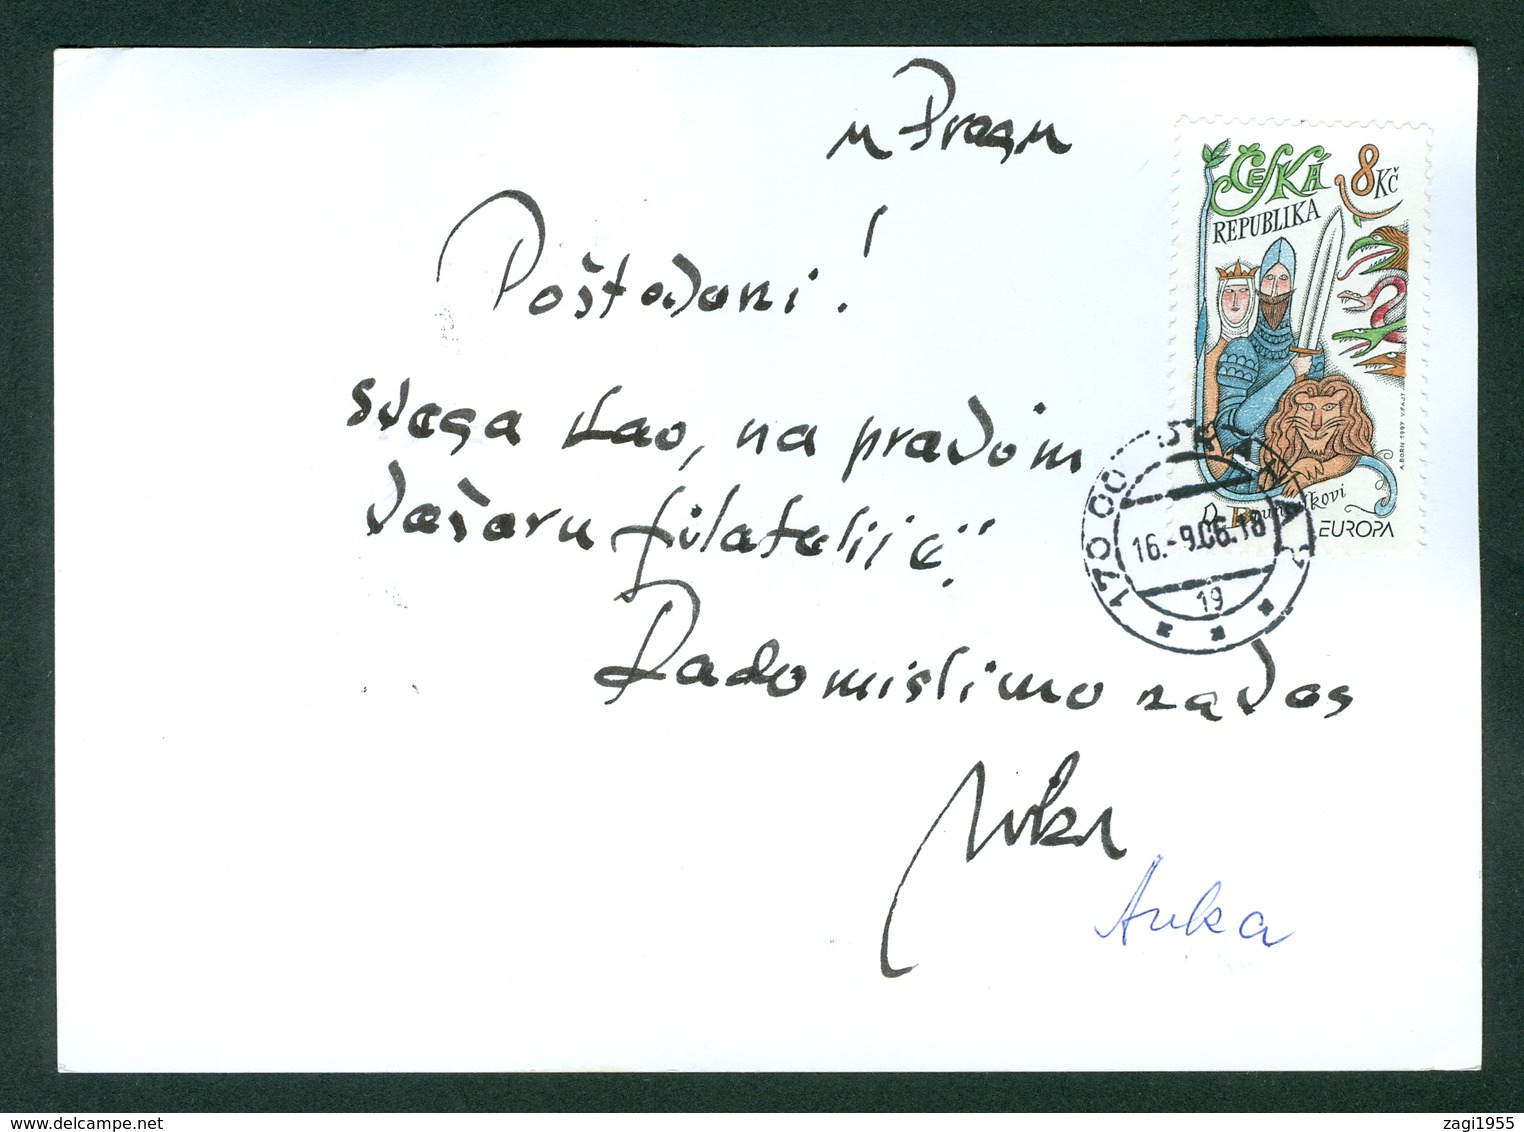 u Pragu
Poštovani!
svega kao, na pravom
vašaru filatelije."
Radomislimo za Vas
Anka
ČESKÁ
REPUBLIKA
8 Kč
A. BORN 1997 V. FAJT
O Bruncvíkovi
EUROPA
170 00
16.-9.06.18
19
zagi1955